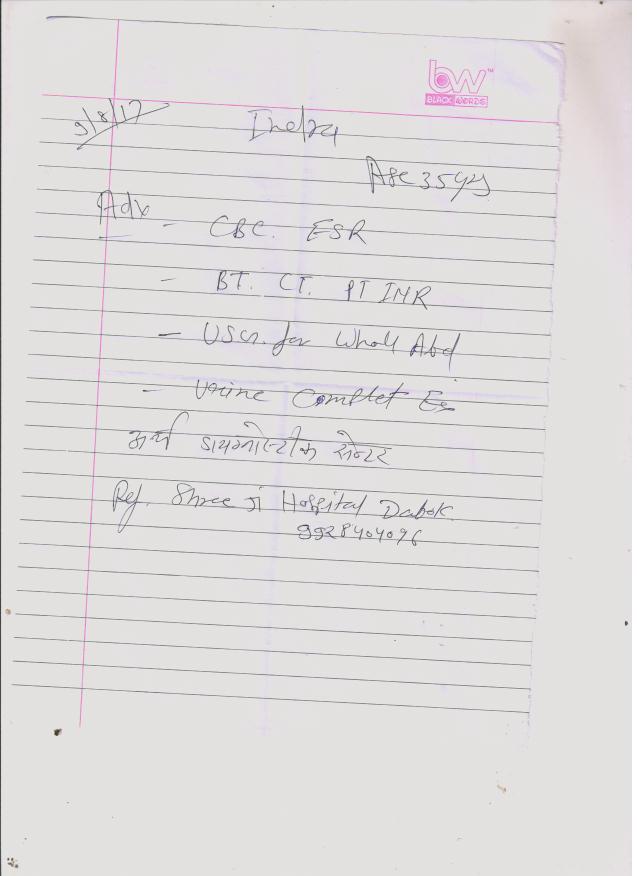 bw™
BLACK WORDS
9/8/17
Indra
Age 35 yrs
Adv
- CBC. ESR
- BT. CT. PT INR
- USG. for Whole Abd
- Urine Complet Ex
अर्थ डायग्नोस्टीक सेन्टर
Ref. Shree ji Hospital Dabok.
9928404096